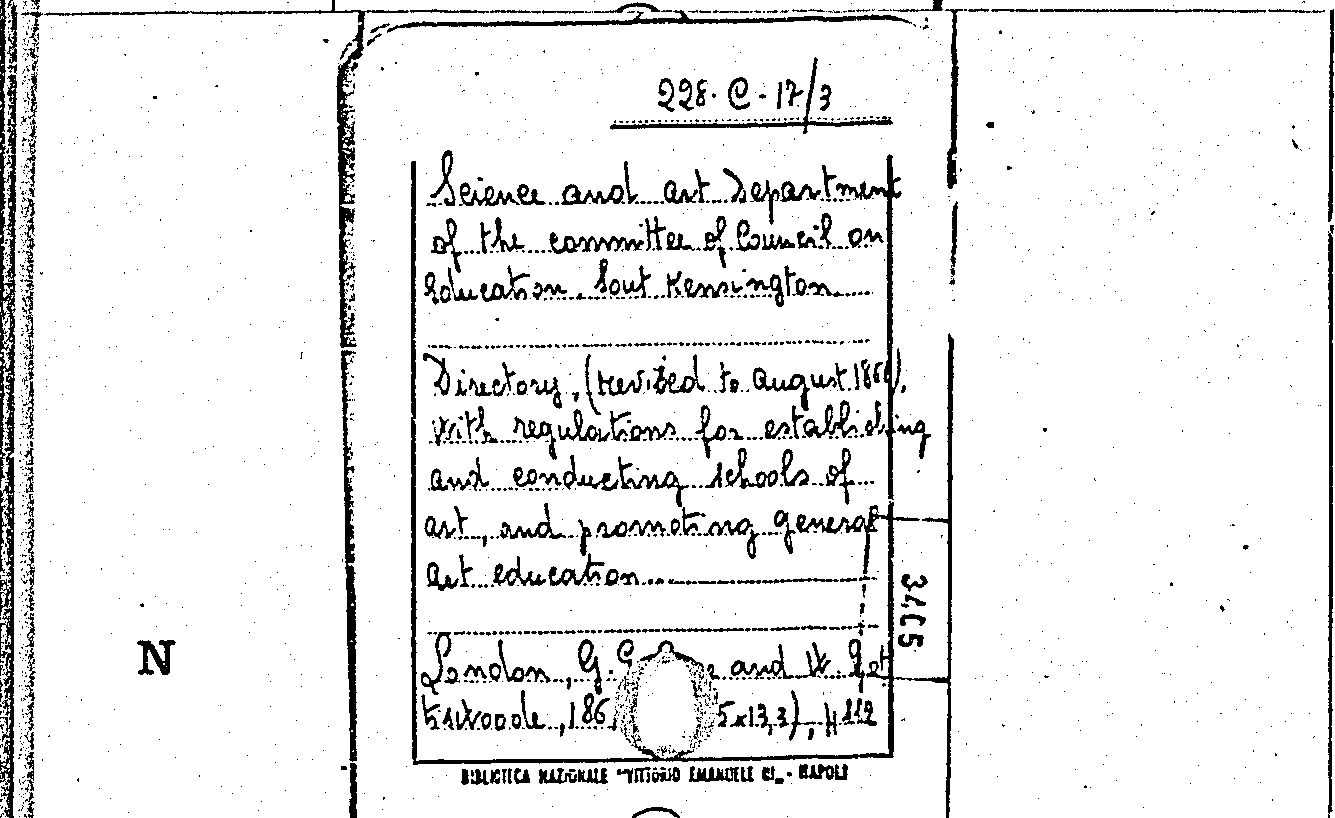 228. C - 17/3
Science and art Department
of the committee of Council on
Education. Sout Kensington
Directory, (revized to august 186
with regulations for establishing
and conducting schools of
art, and promoting general
art education
London, G. and W.
186 5x13,3), p.
3405
N
BIBLIOTECA NAZIONALE "VITTORIO EMANUELE III" - NAPOLI